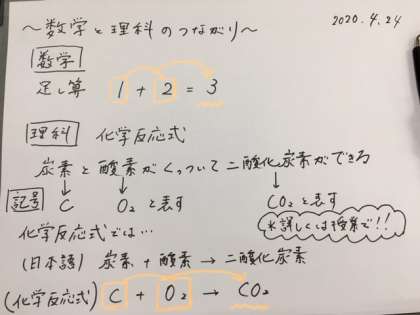 ～数学と理科のつながり～
2020.4.24
数学
足し算 1 + 2 = 3
理科 化学反応式
炭素と酸素がくっついて二酸化炭素ができる
↓ ↓ ↓
記号 C O₂ と表す CO₂ と表す
化学反応式では… ※詳しくは授業で!!
(日本語) 炭素 + 酸素 → 二酸化炭素
(化学反応式) C + O₂ → CO₂